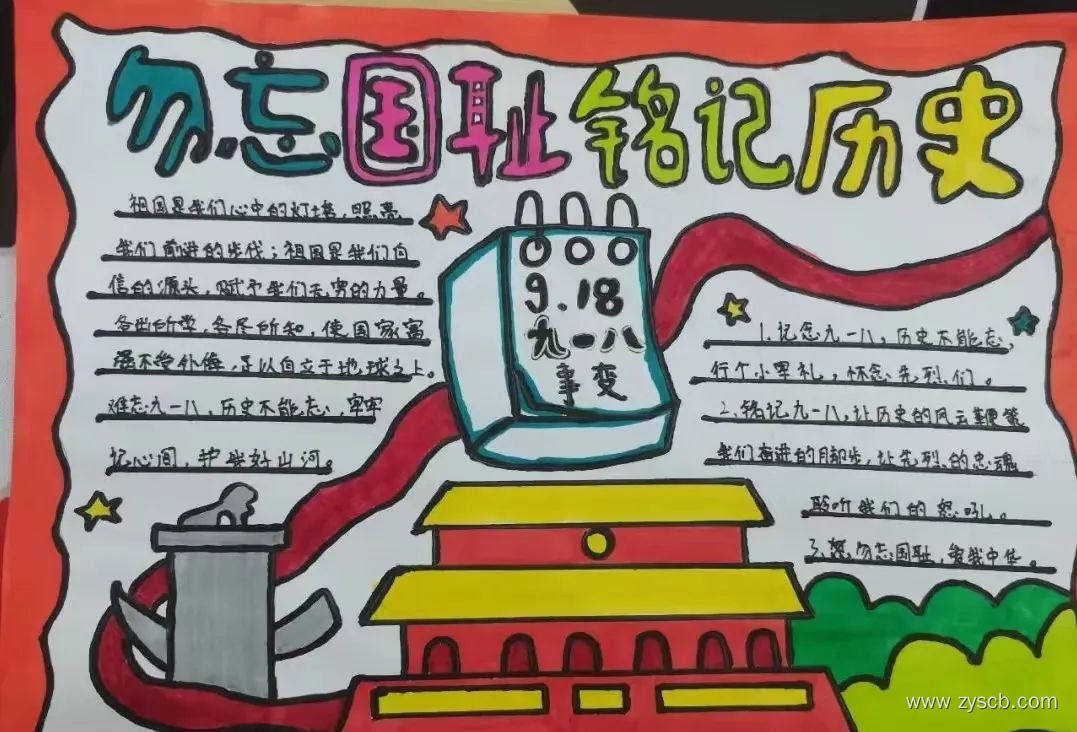 勿忘国耻铭记历史
祖国是我们心中的灯塔，照亮
我们前进的步伐；祖国是我们自
信的源头，赋予我们无穷的力量。
各尽所学，各尽所知，使国家富
强不受外侮，足以自立于地球之上。
难忘九一八，历史不能忘，牢牢
记心间，护我好山河。
9.18
九一八
事变
1.记念九一八，历史不能忘，
行个小军礼，怀念先烈们。
2.铭记九一八，让历史的风云鞭策
我们奋进的脚步，让先烈的忠魂
聆听我们的怒吼。
3.勿忘国耻，爱我中华。
www.zyscb.com